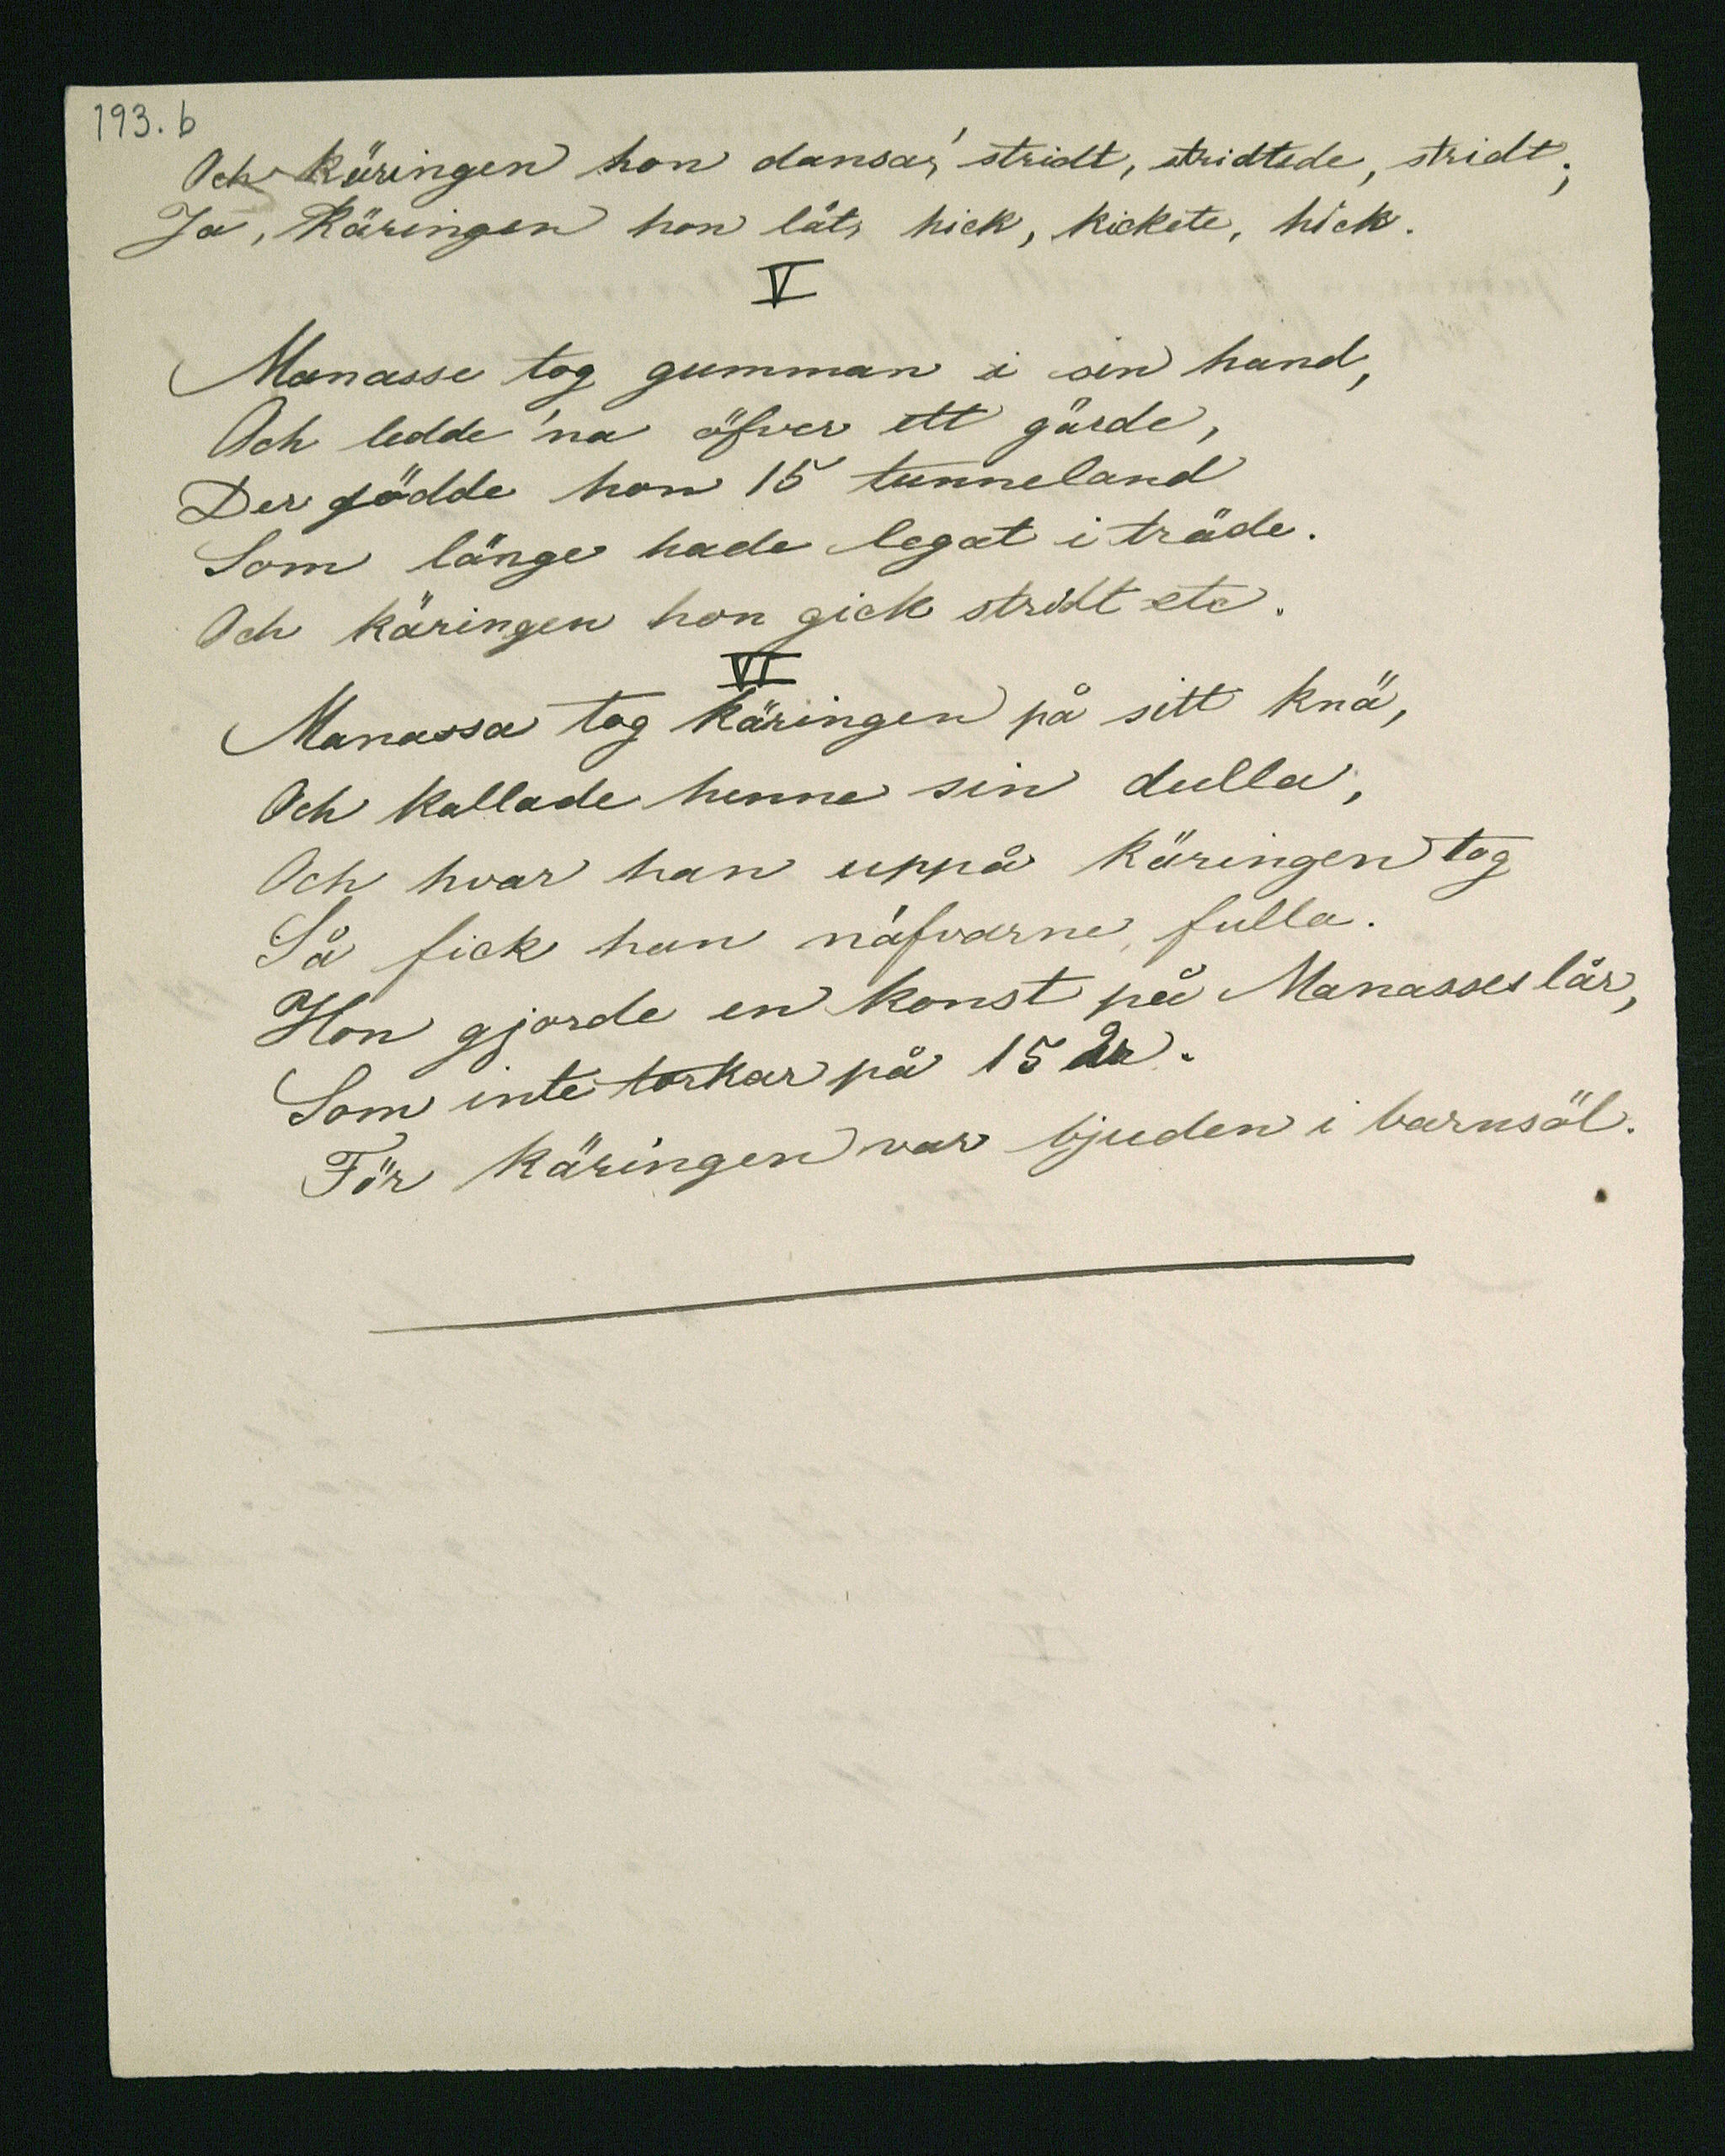 193. b
Och käringen hon dansa', stridt, stridtede, stridt;
Ja, Käringen hon lät, hick, kickete, hick.
V
Manasse tog gumman i sin hand,
Och ledde 'na öfver ett gärde,
Der gödde hon 15 tunneland
Som länge hade legat i träde.
Och käringen hon gick stridt etc.
VI
Manassa tog käringen på sitt knä,
Och kallade henne sin dulla,
Och hvar han uppå käringen tog
Så fick han näfvarne fulla.
Hon gjorde en konst på Manasses lår,
Som inte torkar på 15 år.
För käringen var bjuden i barnsöl.